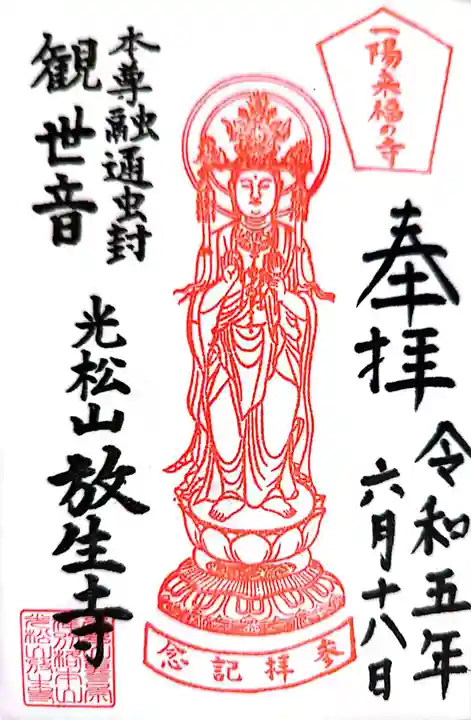 一陽来福の寺
奉拝
令和五年
六月十八日
本尊融通虫封
観世音
光松山
放生寺
参拝記念